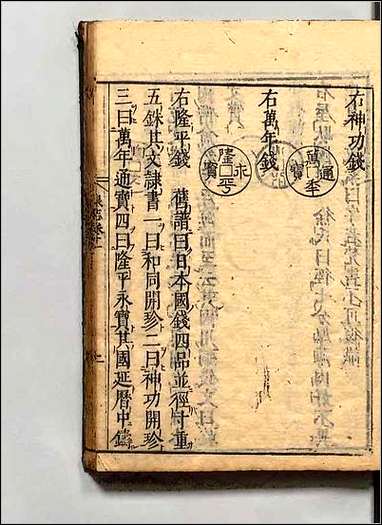 右神功錢
萬年通寶
右萬年錢
隆平永寶
右隆平錢 舊譜曰日本國錢四品並徑寸重
五銖其文隸書一曰和同開珍二曰神功開珍
三曰萬年通寶四曰隆平永寶其國延曆中鑄